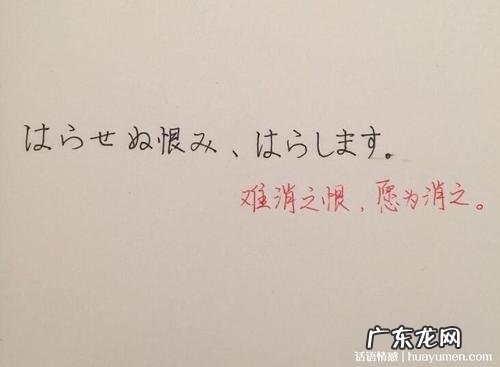 はらせぬ恨み、はらします。
难消之恨，愿为消之。
广东龙网
话语情感 | huayumen.com